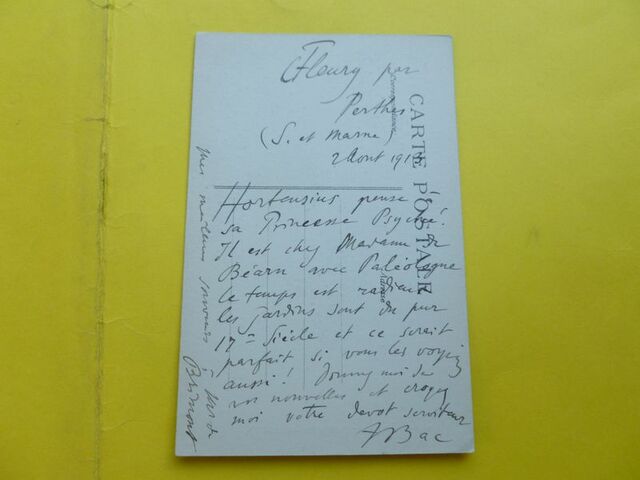 Fleury par
Perthes
(S. et Marne)
2 Aout 191
CARTE POSTALE
Correspondance
Hortensius pense à
sa Princesse Psyché!
Il est chez Madame de
Béarn avec Paléologue
le temps est radieux
les jardins sont du pur
17me Siècle et ce serait
parfait si vous les voyiez
aussi! Donnez moi de
vos nouvelles et croyez
moi votre devot serviteur
FBac
mes meilleurs souvenirs
de
Brimont